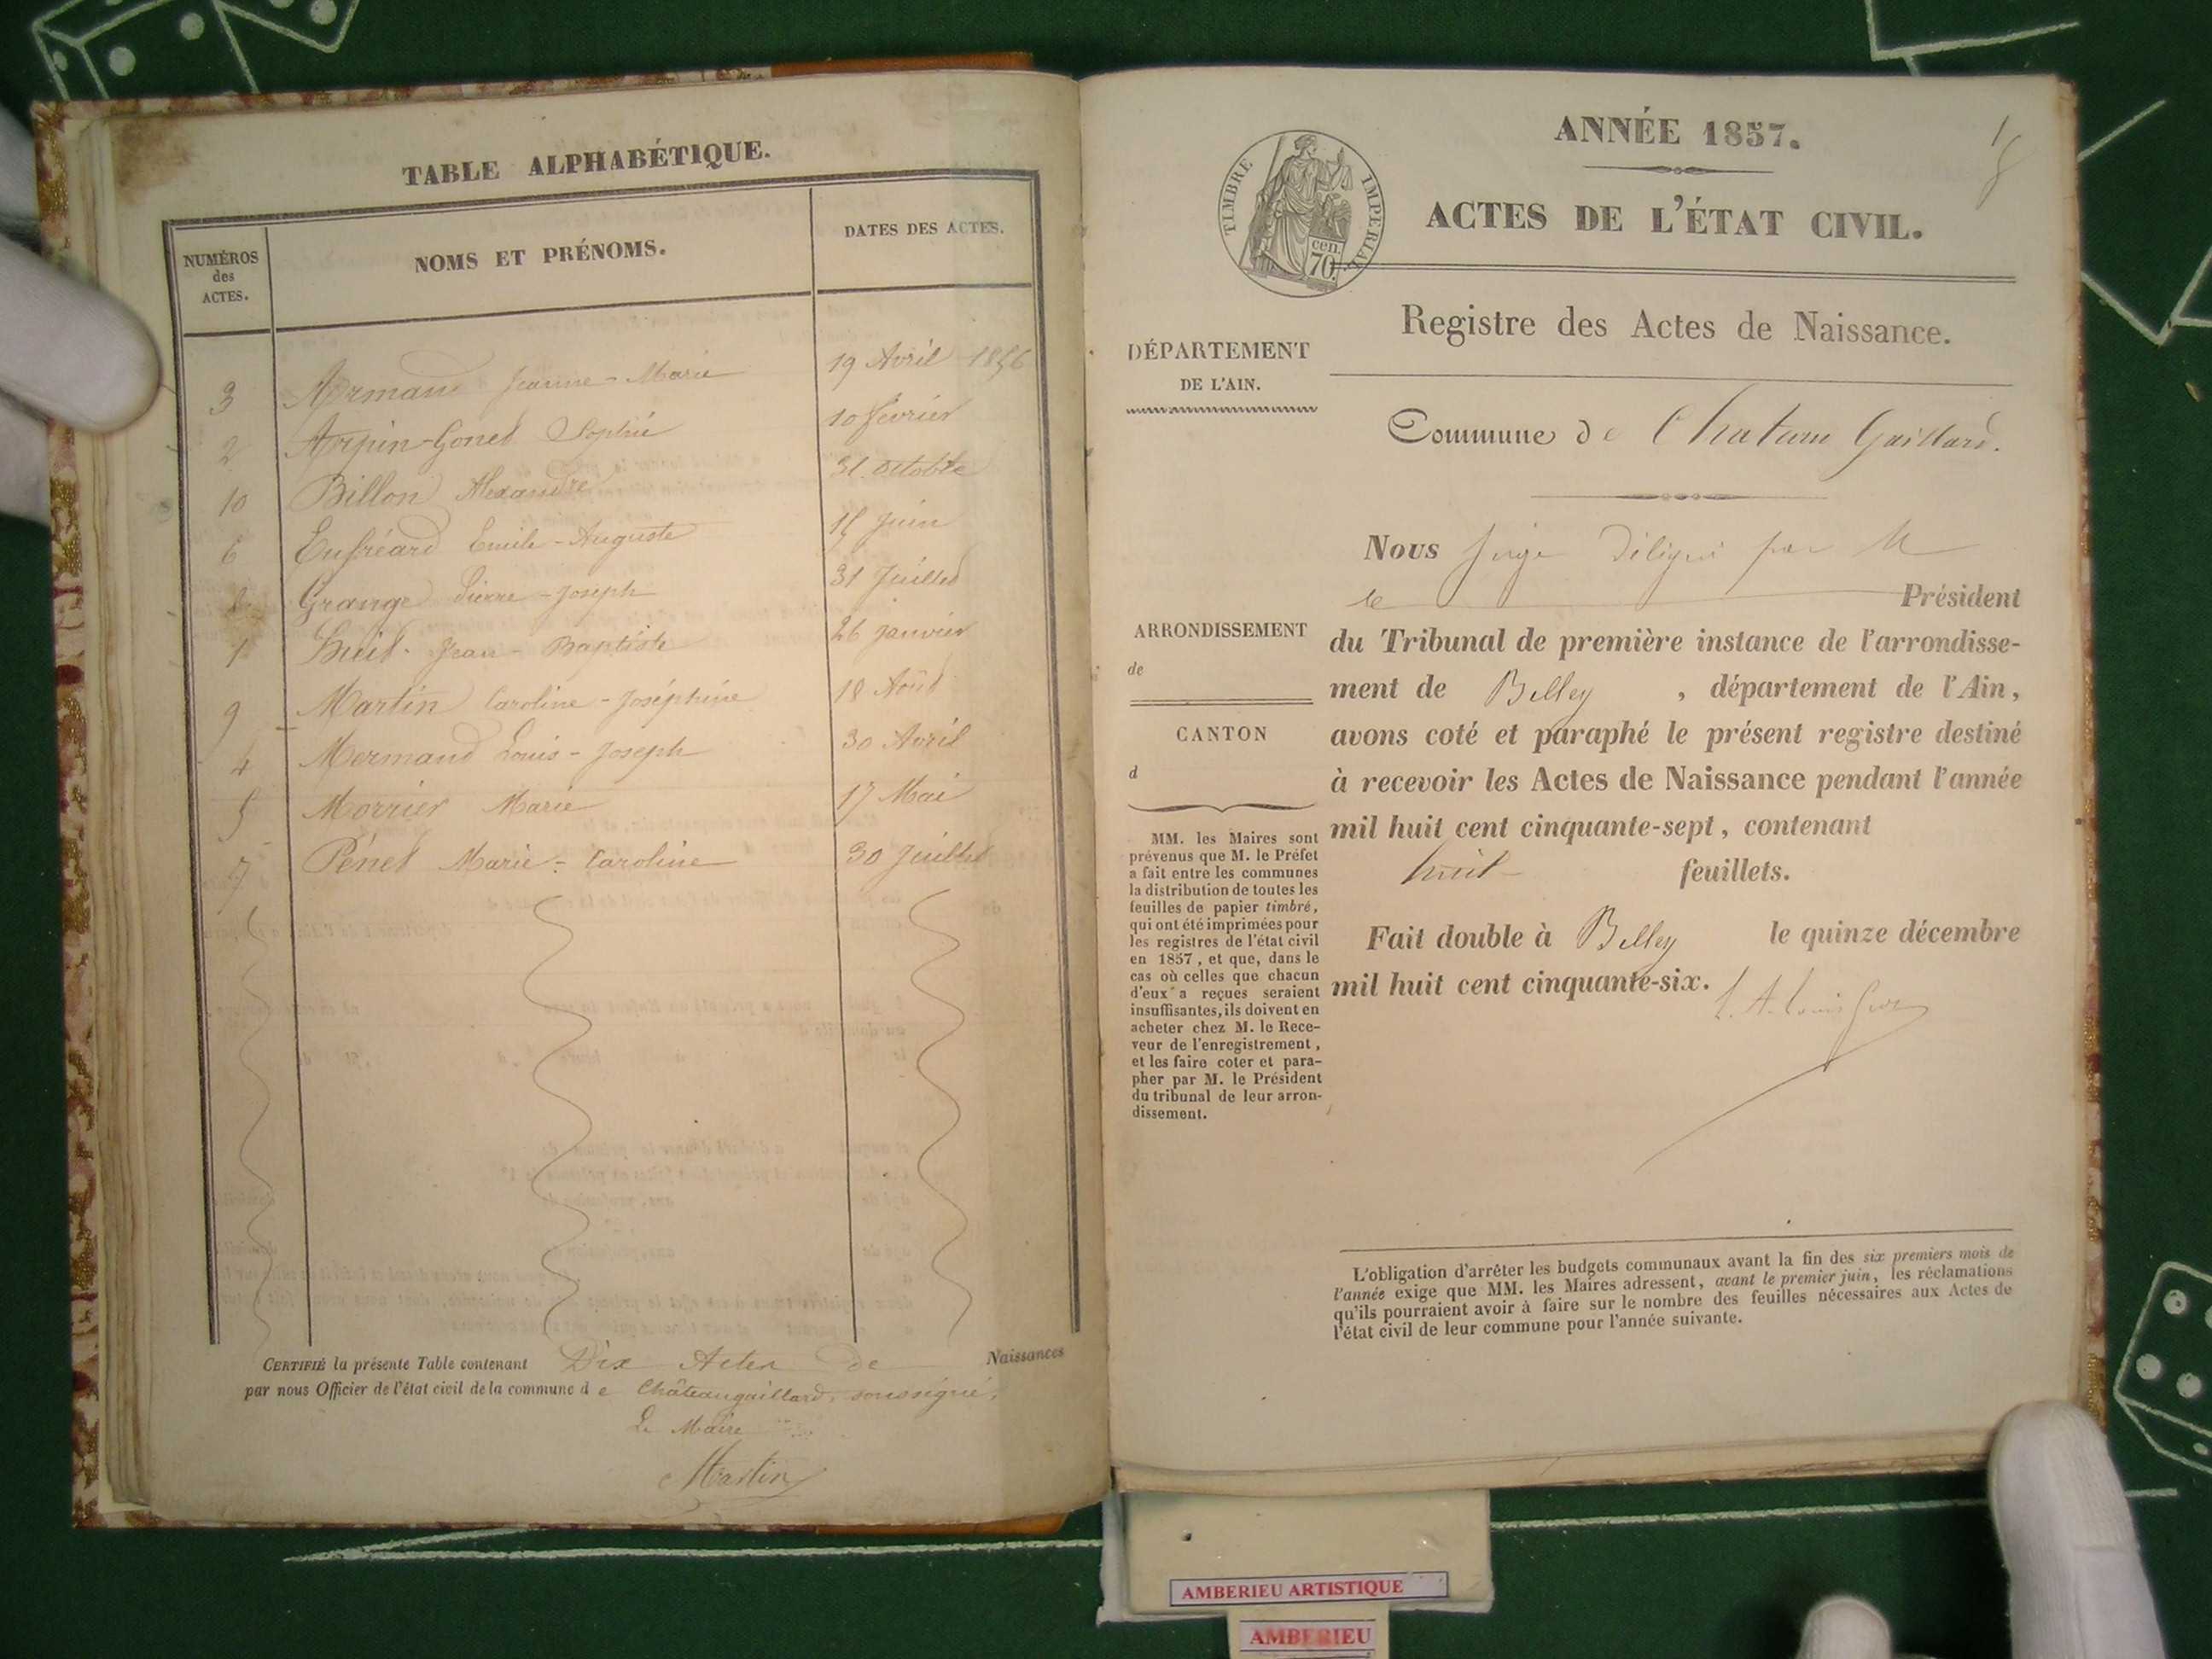 TABLE ALPHABÉTIQUE.
NUMÉROS des ACTES.
NOMS ET PRÉNOMS.
DATES DES ACTES.
3 Armand Jeanne-Marie 19 Avril 1856
2 Arpin-Gonet Sophie 10 février
10 Billon Alexandre 31 octobre
6 Enfréard Emile-Auguste 15 Juin
Grange Pierre-Joseph 31 Juillet
1 Jean-Baptiste 26 janvier
9 Martin Caroline-Joséphine 18 Août
4 Mermand Louis-Joseph 30 Avril
5 Morrier Marie 17 Mai
7 Pénet Marie-Caroline 30 Juillet
CERTIFIÉ la présente Table contenant Dix Actes de Naissances
par nous Officier de l'état civil de la commune d e Châteaugaillard, soussigné,
Le Maire
Martin
1
8
ANNÉE 1857.
TIMBRE IMPERIAL
70 cen.
ACTES DE L'ÉTAT CIVIL.
Registre des Actes de Naissance.
DÉPARTEMENT
DE L'AIN.
Commune de Chateau Gaillard.
Nous Juge Délégué par M
le Président
ARRONDISSEMENT
de
CANTON
d
du Tribunal de première instance de l'arrondisse-
ment de Belley , département de l'Ain,
avons coté et paraphé le présent registre destiné
à recevoir les Actes de Naissance pendant l'année
mil huit cent cinquante-sept, contenant
huit feuillets.
Fait double à Belley le quinze décembre
mil huit cent cinquante-six.
MM. les Maires sont
prévenus que M. le Préfet
a fait entre les communes
la distribution de toutes les
feuilles de papier timbré,
qui ont été imprimées pour
les registres de l'état civil
en 1857, et que, dans le
cas où celles que chacun
d'eux a reçues seraient
insuffisantes, ils doivent en
acheter chez M. le Rece-
veur de l'enregistrement,
et les faire coter et para-
pher par M. le Président
du tribunal de leur arron-
dissement.
L'obligation d'arrêter les budgets communaux avant la fin des six premiers mois de
l'année exige que MM. les Maires adressent, avant le premier juin, les réclamations
qu'ils pourraient avoir à faire sur le nombre des feuilles nécessaires aux Actes de
l'état civil de leur commune pour l'année suivante.
AMBERIEU ARTISTIQUE
AMBERIEU